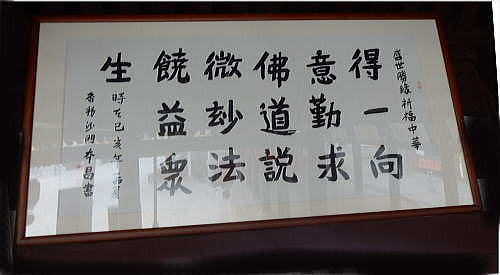 盛世勝緣祈福中華
得一向
意勤求
佛道說
微玅法
饒益眾
生
時在己亥
沙門本昌書